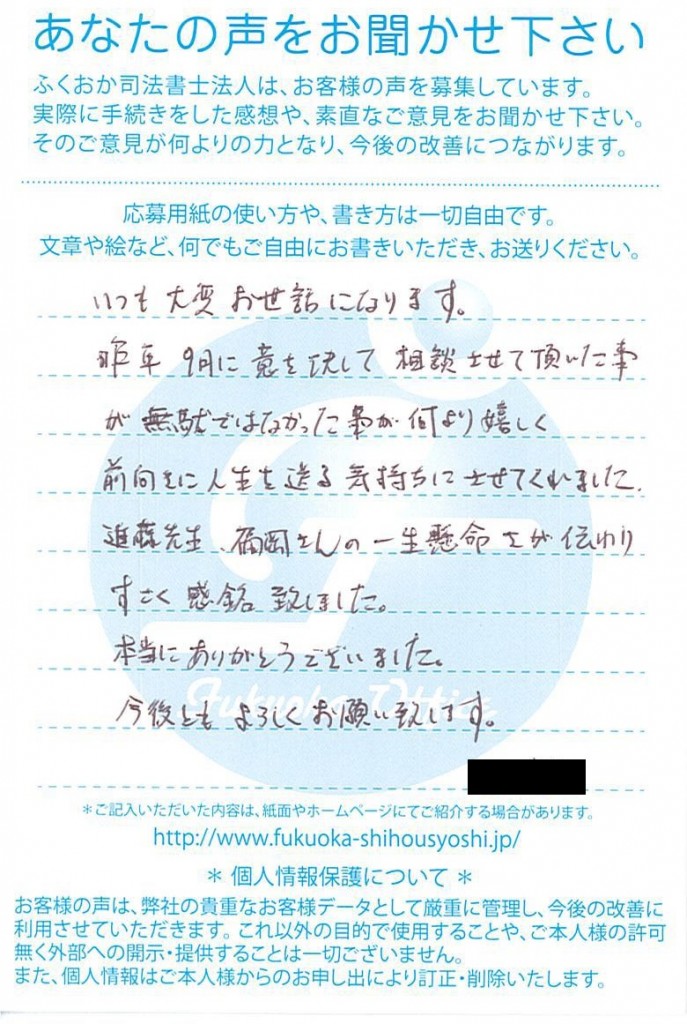 あなたの声をお聞かせ下さい
ふくおか司法書士法人は、お客様の声を募集しています。
実際に手続きをした感想や、素直なご意見をお聞かせ下さい。
そのご意見が何よりの力となり、今後の改善につながります。
応募用紙の使い方や、書き方は一切自由です。
文章や絵など、何でもご自由にお書きいただき、お送りください。
いつも大変お世話になります。
昨年9月に意を決して相談させて頂いた事
が無駄ではなかった事が何より嬉しく
前向きに人生を送る気持ちにさせてくれました.
進藤先生、福岡さんの一生懸命さが伝わり
すごく感銘致しました。
本当にありがとうございました。
今後ともよろしくお願い致します。
Fukuoka Office
*ご記入いただいた内容は、紙面やホームページにてご紹介する場合があります。
http://www.fukuoka-shihousyoshi.jp/
* 個人情報保護について *
お客様の声は、弊社の貴重なお客様データとして厳重に管理し、今後の改善に
利用させていただきます。これ以外の目的で使用することや、ご本人様の許可
無く外部への開示・提供することは一切ございません。
また、個人情報はご本人様からのお申し出により訂正・削除いたします。